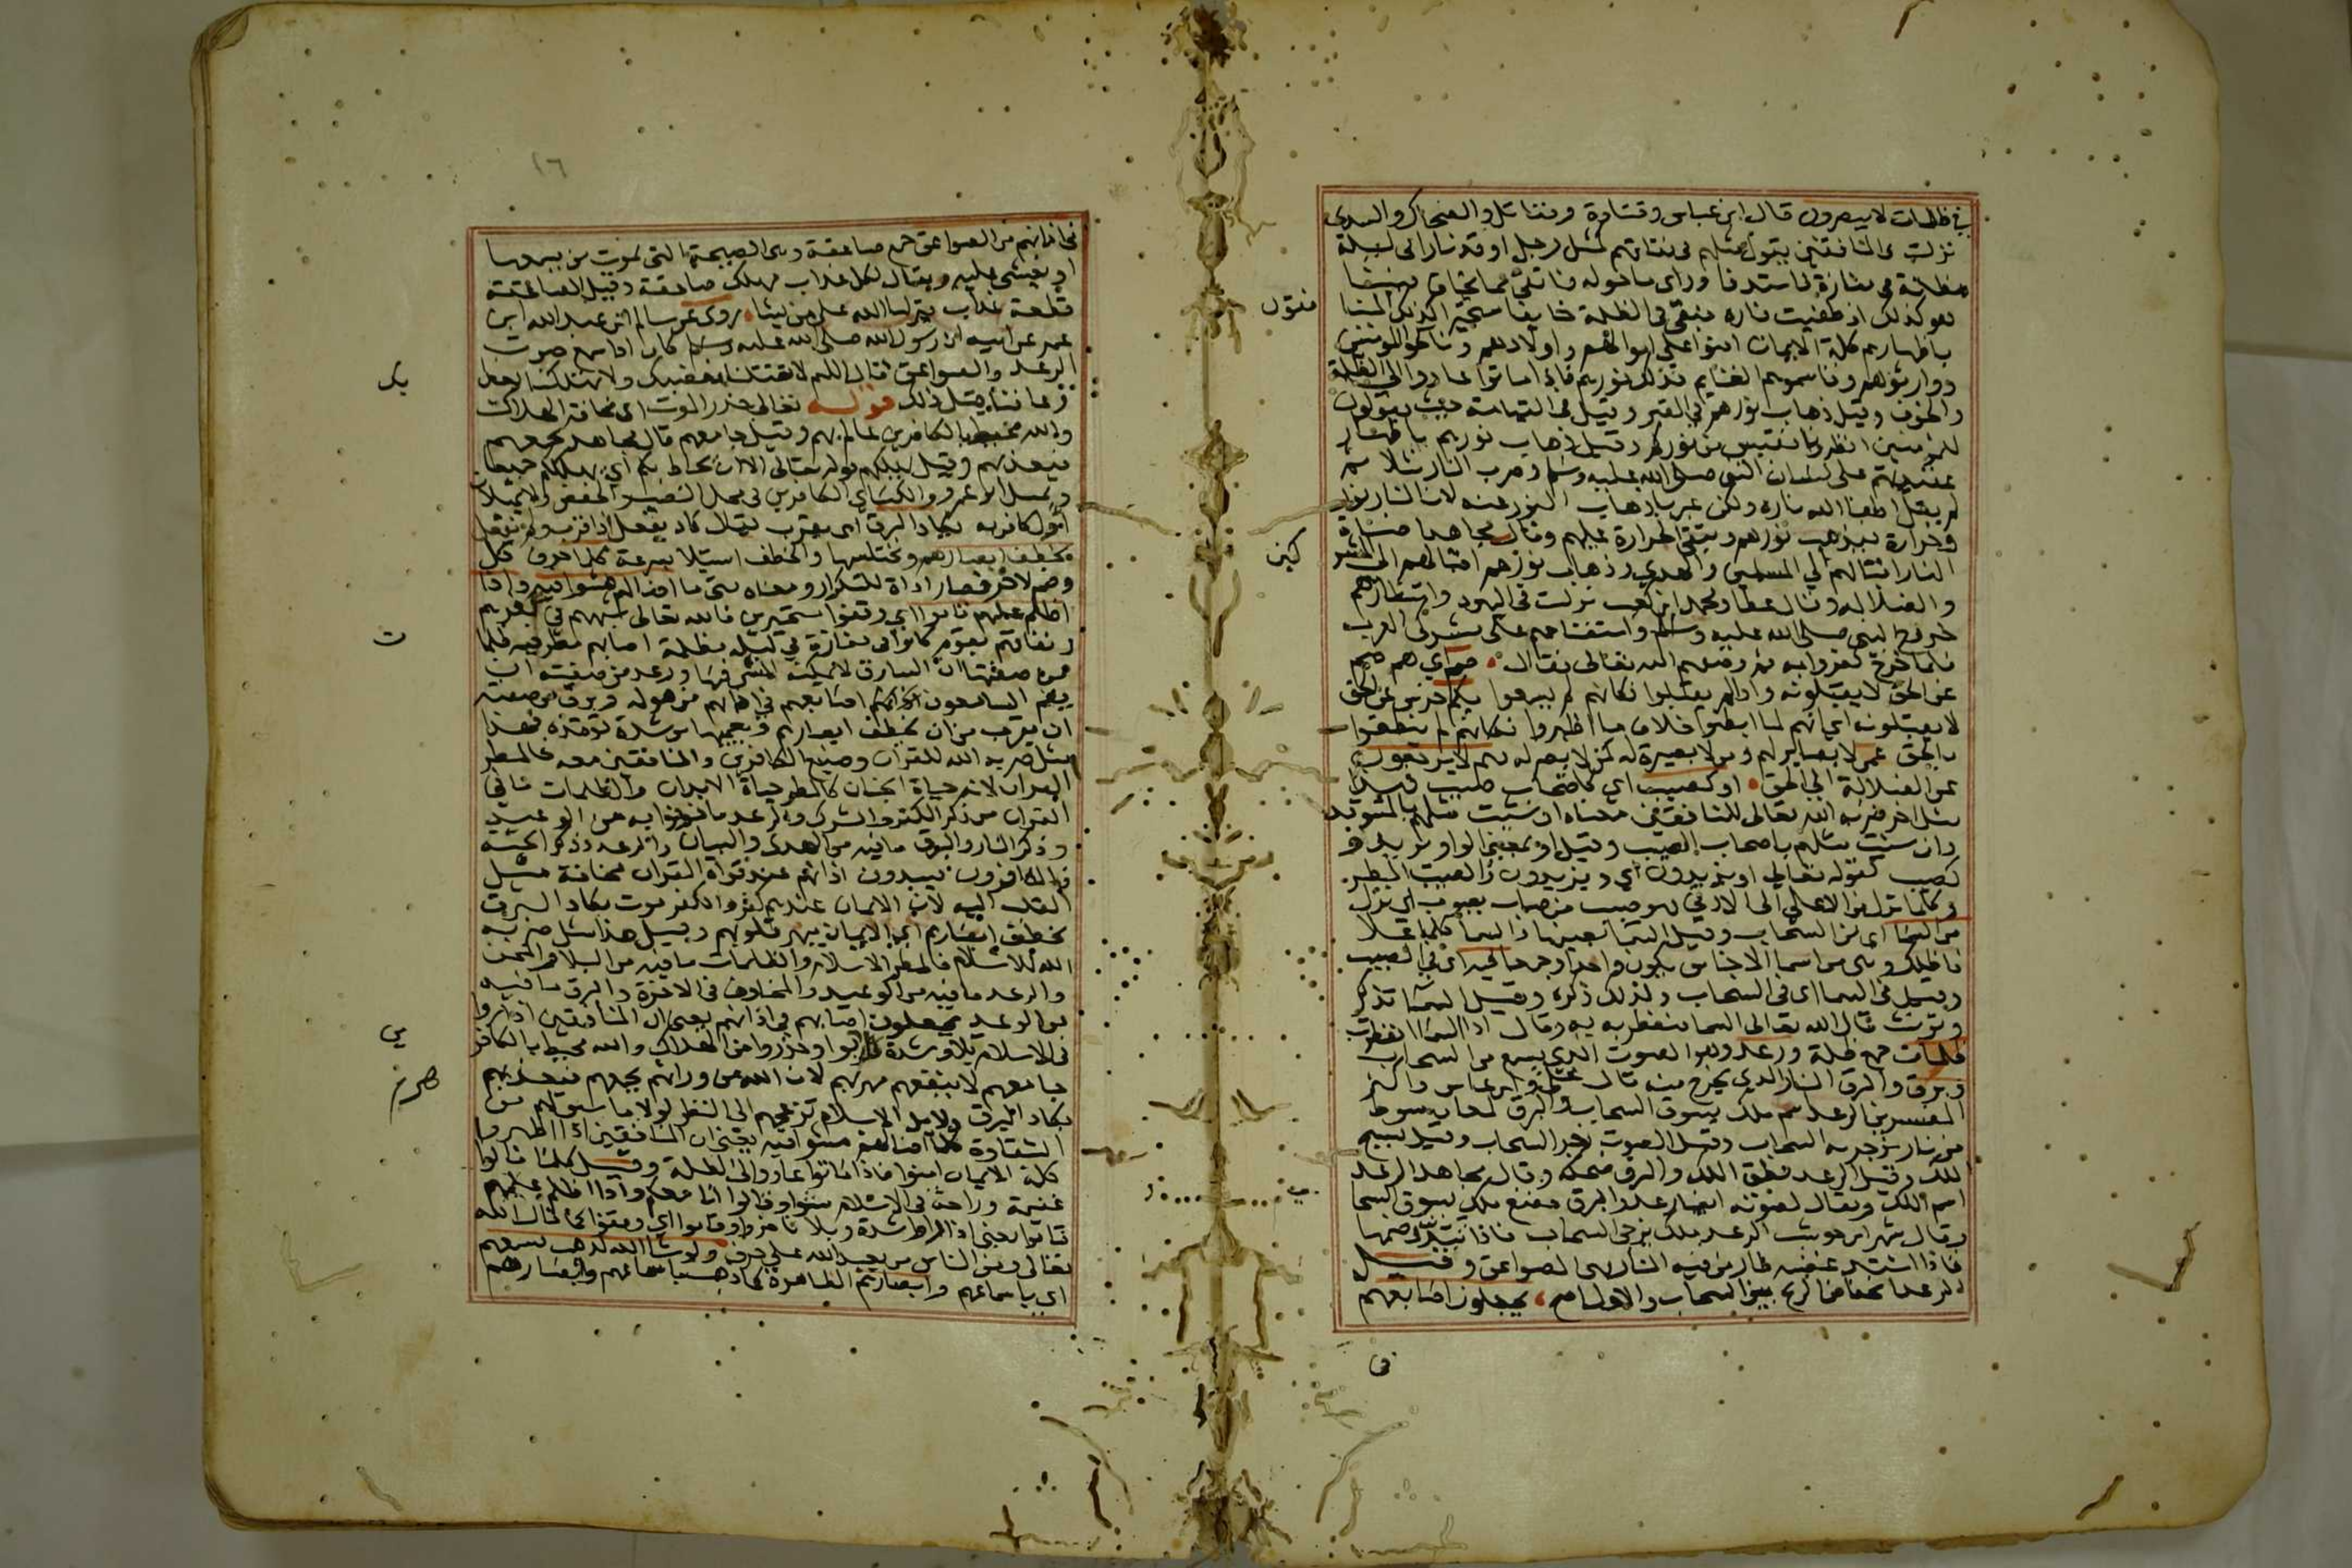 في ظلمات لا يبصرون قال ابن عباس وقتادة ومقاتل والضحاك والسدي
نزلت في المنافقين يقول مثلهم في نفاقهم كمثل رجل اوقد نارا في ليلة
مظلمة في مفازة فاستدفا وراى ما حوله فاتقى مما يخاف فبينا
هو كذلك اذ طفيت ناره فبقي في الظلمة خايفا متحيرا فكذلك المنا
فقون
باظهارهم كلمة الايمان امنوا على اموالهم واولادهم وناكحوا المومنين
ووارثوهم وقاسموهم الغنايم فذلك نورهم فاذا ماتوا عادوا الى الظلمة
والخوف وقيل ذهاب نورهم في القبر وقيل في القيامة حيث يقولون
للمومنين انظرونا نقتبس من نوركم وقيل ذهاب نورهم باظهار
عقيدتهم على لسان النبي صلى الله عليه وسلم وضرب النار مثلا ثم
لم يقل اطفا الله ناره ولكن عبر باذهاب النور عنه لان النار نور
وحرارة فيذهب نورهم وتبقى الحرارة عليهم وقال مجاهد اضاءة
النار اقبالهم الى المسلمين والهدى وذهاب نورهم اقبالهم الى المشر
كين
والضلالة وقال عطا ومحمد ابن كعب نزلت في اليهود وانتظارهم
خروج النبي صلى الله عليه وسلم واستفتاحهم على مشركي العرب
فلما خرج كفروا به ثم وصفهم الله تعالى فقال صم اي هم صم
عن الحق لا يقبلونه واذا لم يقبلوا فكانهم لم يسمعوا بكم خرس عن الحق
لا يقولونه اي انهم لما ابطنوا خلاف ما اظهروا فكانهم لم ينطقوا
بالحق عمي لا بصاير لهم ومن لا بصيرة له كمن لا بصر له فهم لا يرجعون
عن الضلالة الى الحق او كصيب اي كاصحاب صيب
مثل اخر ضربه الله تعالى للمنافقين معناه ان شيت مثلهم بالمستوقد
وان شيت مثلهم باصحاب الصيب وقيل او بمعنى الواو يريد و
كصيب كقوله تعالى او يزيدون اي ويزيدون والصيب المطر
وكلما نزل من الاعلى الى الادنى فهو صيب من صاب يصوب اي نزل
من السماء اي من السحاب وقيل السما بعينها والسما كلما علا
فاظلك وهي من اسما الاجناس يكون واحدا وجمعا فيه اي في الصيب
وقيل في السما اي في السحاب ولذلك ذكره وقيل السما تذكر
وتونث قال الله تعالى السما منفطر به وقال اذا السما انفطرت
ظلمات جمع ظلمة ورعد وهو الصوت الذي يسمع من السحاب
وبرق والبرق النار الذي يخرج منه قال علي وابن عباس واكثر
المفسرين الرعد اسم ملك يسوق السحاب والبرق لمعان سوط
من نار يزجر به السحاب وقيل الصوت زجر السحاب وقيل تسبيح
الملك وقيل الرعد نطق الملك والبرق ضحكه وقال مجاهد الرعد
اسم الملك ويقال لصوته ايضا رعد والبرق مصع ملك يسوق السحا
ب
وقال شهر ابن حوشب الرعد ملك يزجي السحاب فاذا تبددت ضمها
فاذا اشتد غضبه طار من فيه النار فهي الصواعق وقيل
الرعد انخناق الريح بين السحاب والاول اصح يجعلون اصابعهم
في
١٦
في اذانهم من الصواعق جمع صاعقة وهي الصيحة التي يموت من يسمعها
او يغشى عليه ويقال لكل عذاب مهلك صاعقة وقيل الصاعقة
قطعة عذاب ينزلها الله على من يشا روى عن سالم ابن عبد الله ابن
عمر عن ابيه ان رسول الله صلى الله عليه وسلم كان اذا سمع صوت
الرعد والصواعق قال اللهم لا تقتلنا بغضبك ولا تهلكنا بعذا
بك
وعافنا قبل ذلك قوله تعالى حذر الموت اي مخافة الهلاك
والله محيط بالكافرين عالم بهم وقيل جامعهم قال مجاهد يجمعهم
فيعذبهم وقيل يهلكهم قوله تعالى الا ان يحاط بكم اي تهلكوا جميعا
ويميل ابو عمرو والكساي الكافرين في محل النصب والخفض ولا يميلان
اول كافر به يكاد البرق اي يقرب يقال كاد يفعل اذا قرب ولم يفعل
يخطف ابصارهم ويختلسها والخطف استلاب بسرعة كلما حرف كل
وضم لاخر فصار اداة للتكرار ومعناه متى ما اضا لهم مشوا فيه واذا
اظلم عليهم قاموا اي وقفوا متحيرين فالله تعالى شبههم في كفرهم
ونفاقهم بقوم كانوا في مفازة في ليلة مظلمة اصابهم مطر فيه ظلما
ت
من صفتها ان الساري لا يمكنه المشي فيها ورعد من صفته ان
يضم السامعون اصابعهم في اذانهم من هوله وبرق من صفته
ان يقرب من ان يخطف ابصارهم ويعميها من شدة توقده فهذا
مثل ضربه الله للقران وصنيع الكافرين والمنافقين معه فالمطر
القران لانه حياة الجنان كالمطر حياة الابدان والظلمات ما في
القران من ذكر الكفر والشرك والرعد ما خوفوا به من الوعيد
وذكر النار والبرق ما فيه من الهدى والبيان والوعد وذكر الجنة
فالكافرون يسدون اذانهم عند قراة القران مخافة ميل
القلب اليه لان الايمان عندهم كفر والكفر موت يكاد البرق
يخطف ابصارهم اي الايمان يبهر قلوبهم وقيل هذا مثل ضربه
الله للاسلام فالمطر الاسلام والظلمات ما فيه من البلا والمحن
والرعد ما فيه من الوعيد والمخاوف في الاخرة والبرق ما فيه
من الوعد يجعلون اصابهم في اذانهم يعني ان المنافقين اذا راوا
في الاسلام بلاء وشدة هربوا وحذروا من الهلاك والله محيط بالكافر
ين
جامعهم لا ينفعهم هربهم لان الله من ورائهم يجمعهم فيعذبهم
يكاد البرق ولايل الاسلام تزعجهم الى النظر لولا ما سبق لهم من
الشقاوة كلما اضا لهم مشوا فيه يعني ان المنافقين اذا اظهروا
كلمة الايمان امنوا فاذا ماتوا عادوا الى الظلمة وقيل كلما نالوا
غنيمة وراحة في الاسلام ثبتوا وقالوا انا معكم واذا اظلم عليهم
قاموا يعني اذا راوا شدة وبلا تاخروا وقاموا اي وقفوا كما قال الله
تعالى ومن الناس من يعبد الله على حرف ولو شا الله لذهب بسمعهم
اي باسماعهم وابصارهم الظاهرة كما ذهب باسماعهم وابصارهم